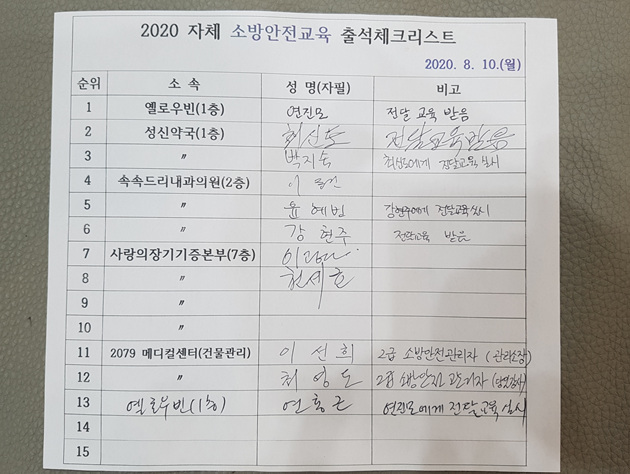 2020 자체 소방안전교육 출석체크리스트
2020. 8. 10.(월)
순위 소 속 성 명(자필) 비고
1 옐로우빈(1층) 연진모 전달 교육 받음
2 성신약국(1층) 최신도 전달교육받음
3 〃 박지숙 전달교육 실시
4 속속드리내과의원(2층) 이
5 〃 윤혜빈 강현주에게 전달교육실시
6 〃 강현주 전달교육 받음
7 사랑의장기기증본부(7층)
8 〃 천세호
9 〃
10 〃
11 2079 메디컬센터(건물관리) 이선희 2급 소방안전관리자 (관리소장)
12 〃 최영도 2급 소방안전관리자
13 옐로우빈(1층) 연홍근 연진모에게 전달교육 실시
14
15